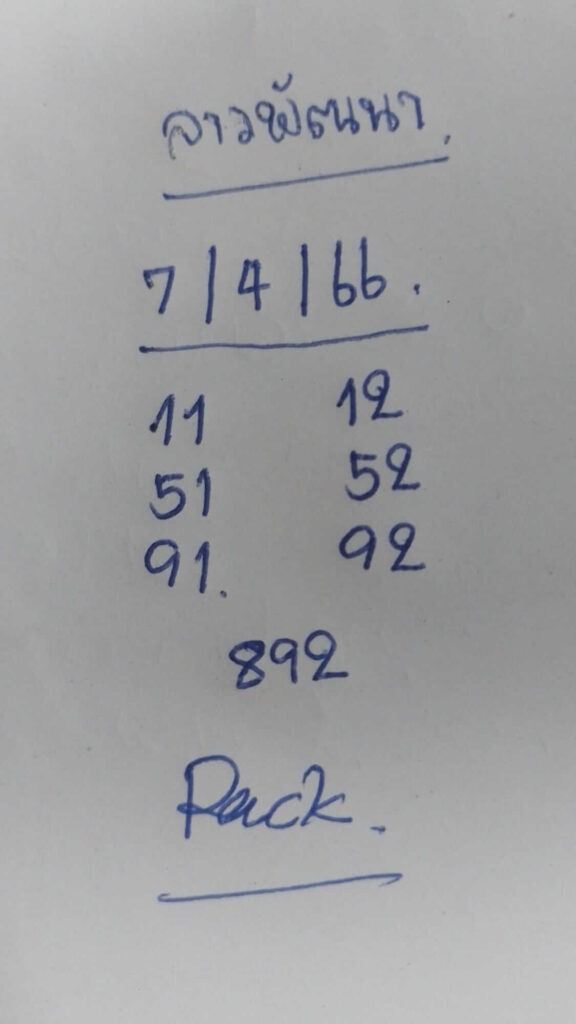 ลาวพัฒนา.
7/4/66.
11 12
51 52
91. 92
892
Pack.